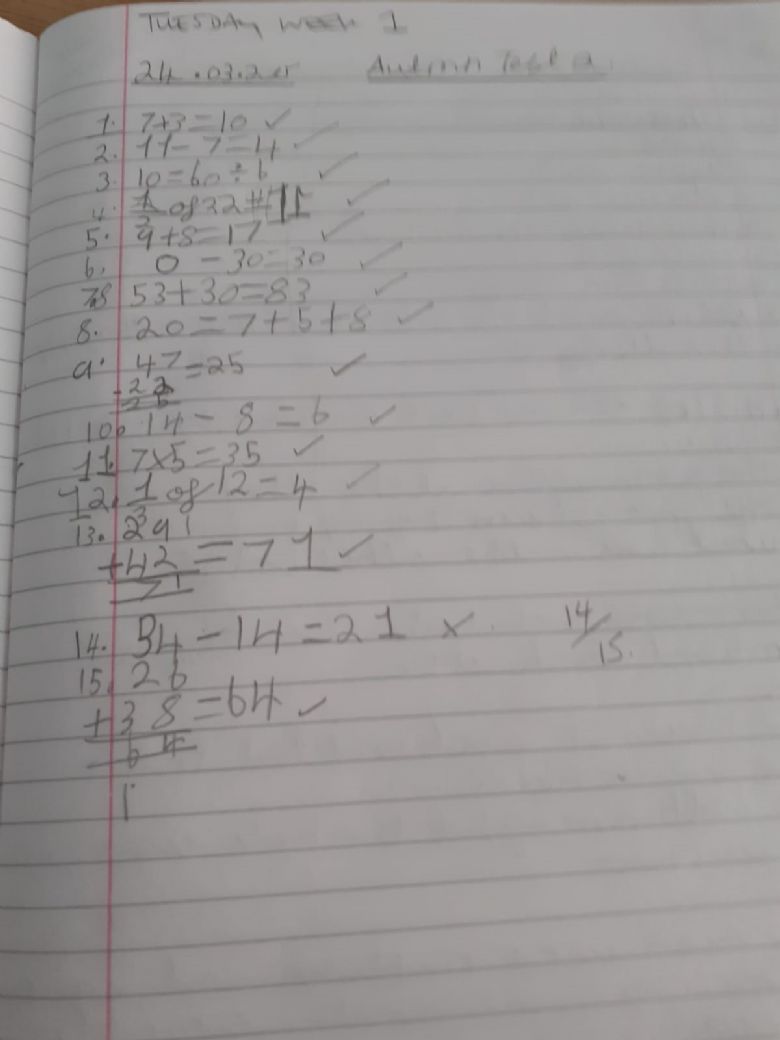 TUESDAY WEEK 1
24.03.2
1. 7+3=10 ✓
2. 11-7=4 ✓
3. 10=60÷6 ✓
4. 1/2 of 22 = 11 ✓
5. 9+8=17 ✓
6. 0-30=30 ✓
7. 53+30=83 ✓
8. 20=7+5+8 ✓
9. 47 =25 ✓
- 22
25
10. 14-8=6 ✓
11. 7x5=35 ✓
12. 1/3 of 12=4 ✓
13. 29
+42 =71 ✓
71
14. 34-14=21 x
14/15.
15. 26
+38 =64 ✓
64
1